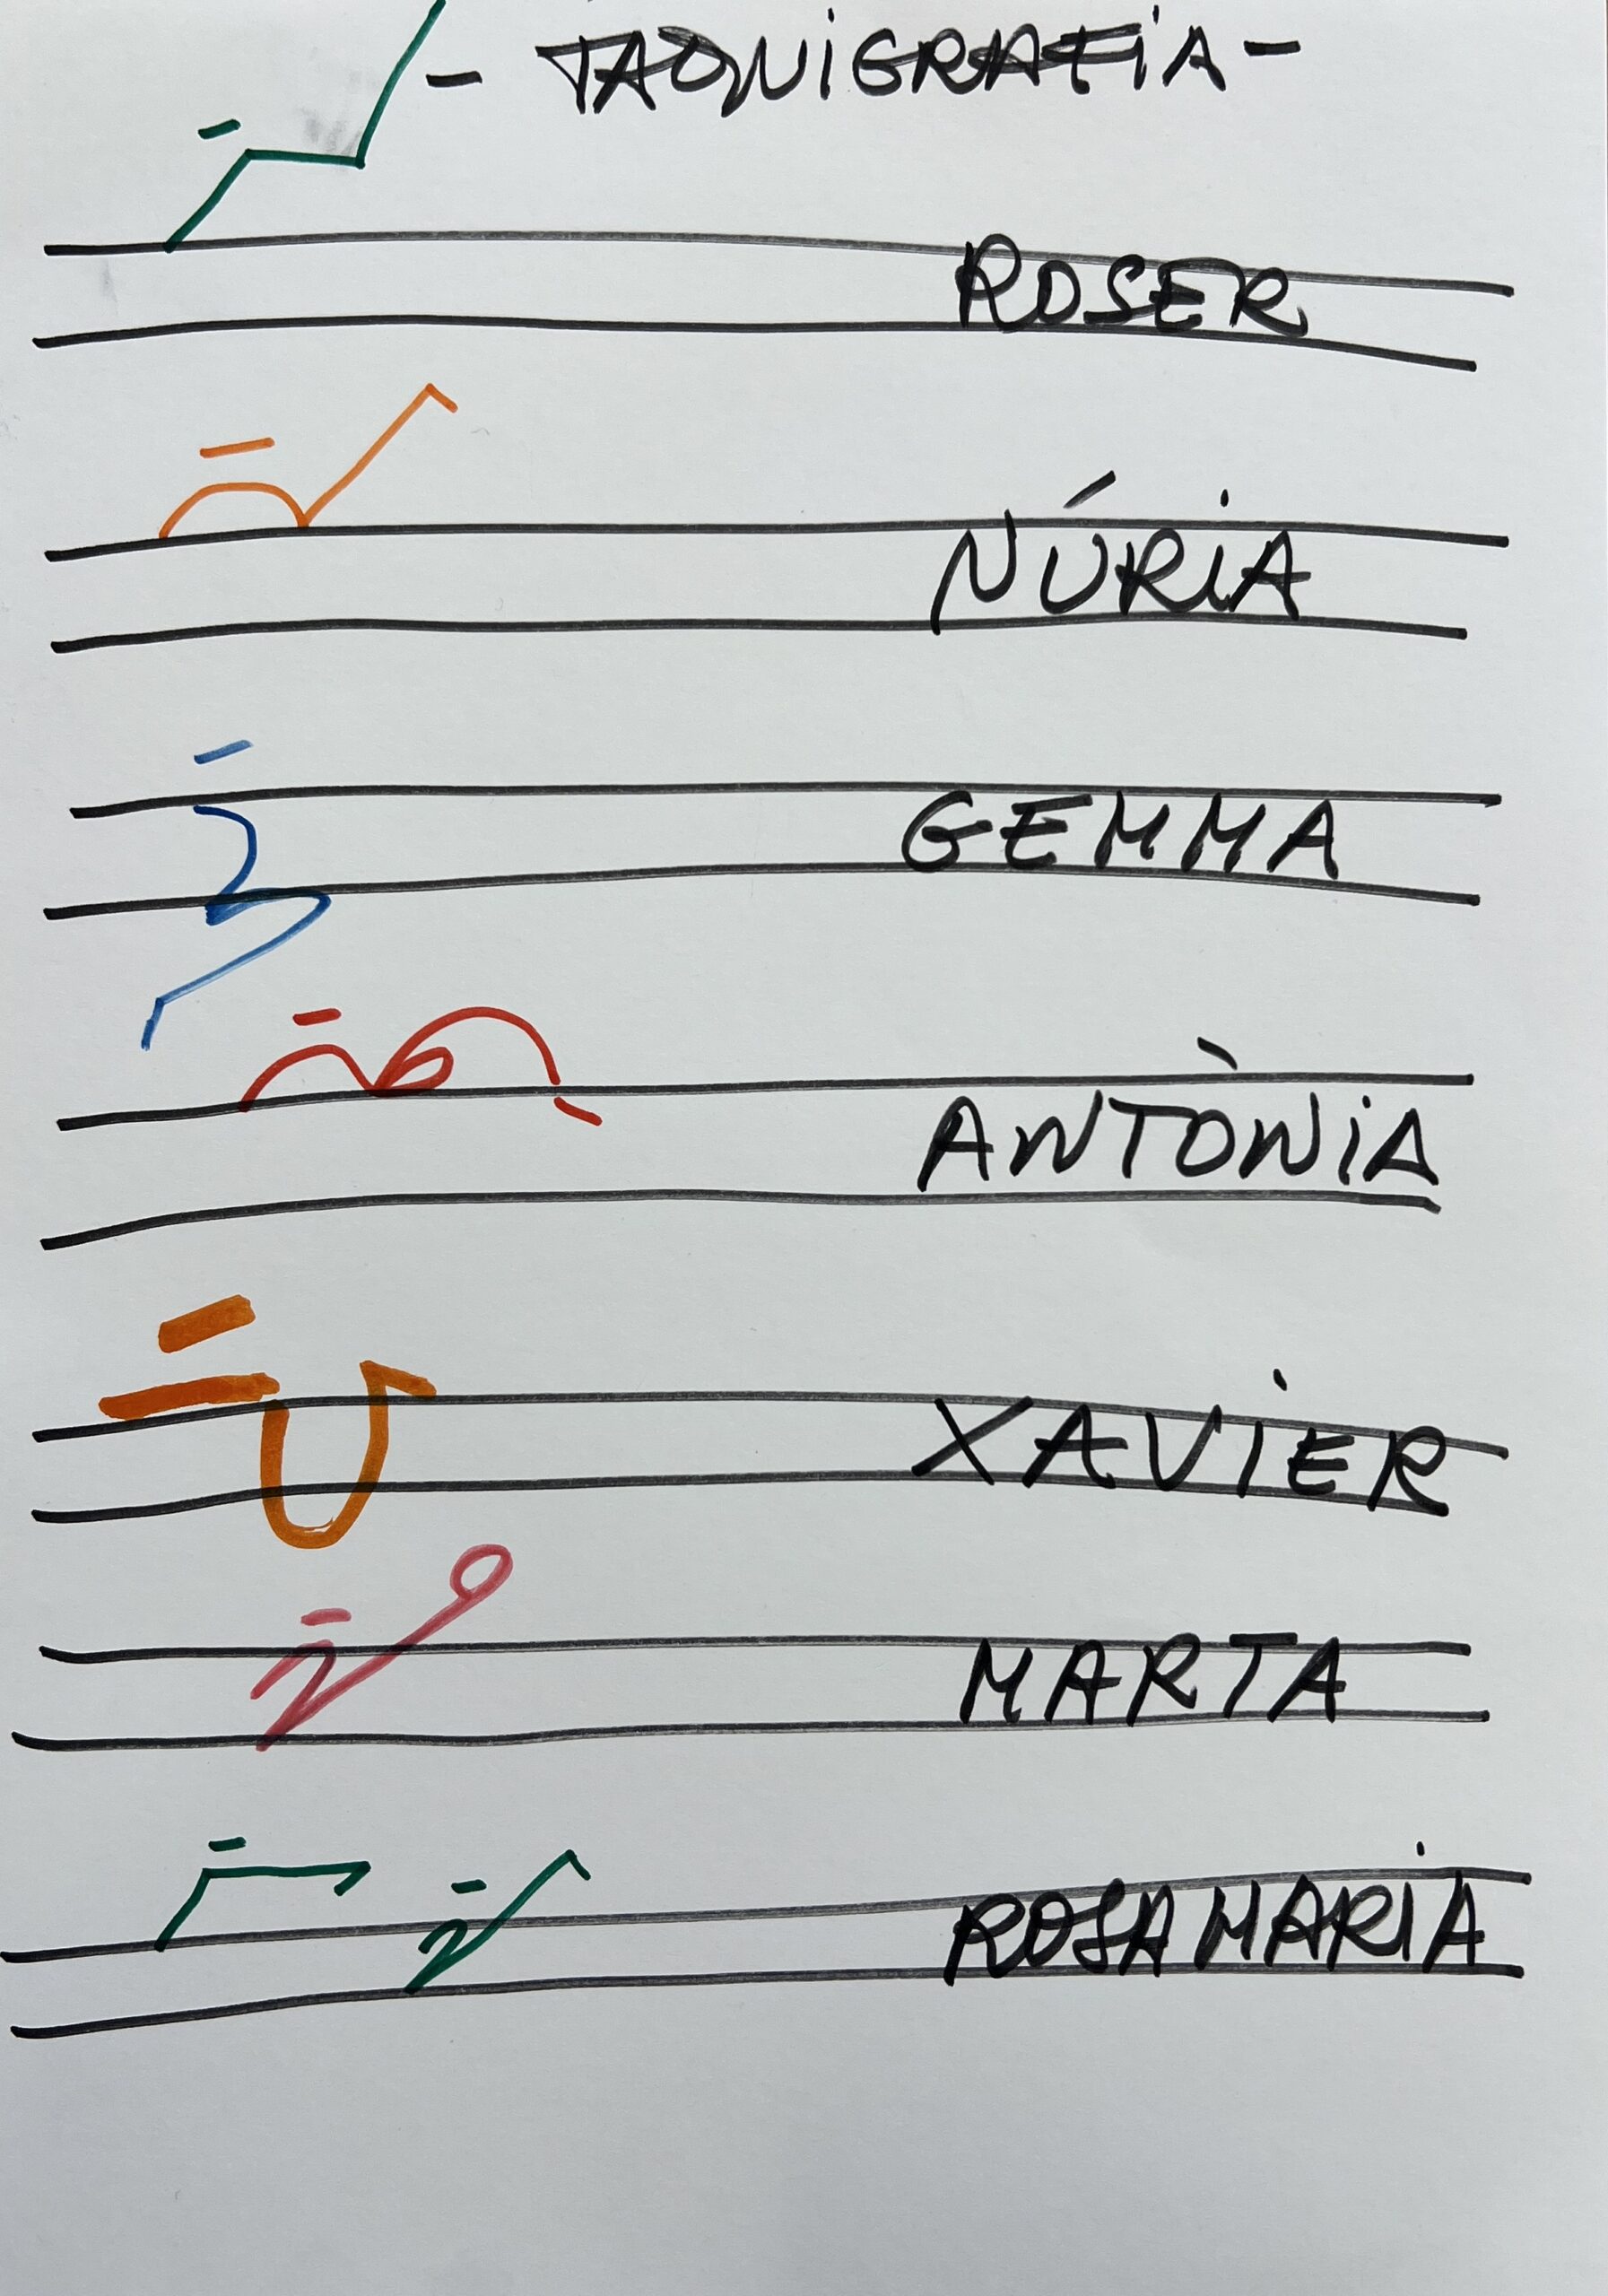 - TAQUIGRAFIA -
ROSER
NÚRIA
GEMMA
ANTÒNIA
XAVIER
MARTA
ROSA MARIA